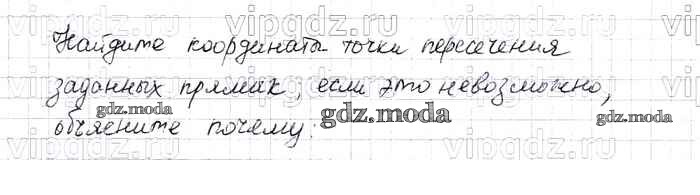 vipgdz.ru vipgdz.ru vipgdz.ru vipgdz.ru
Найдите координаты точки пересечения
заданных прямых, если это невозможно,
gdz.moda gdz.moda gdz.moda
объясните почему:
vipgdz.ru vipgdz.ru vipgdz.ru vipgdz.ru